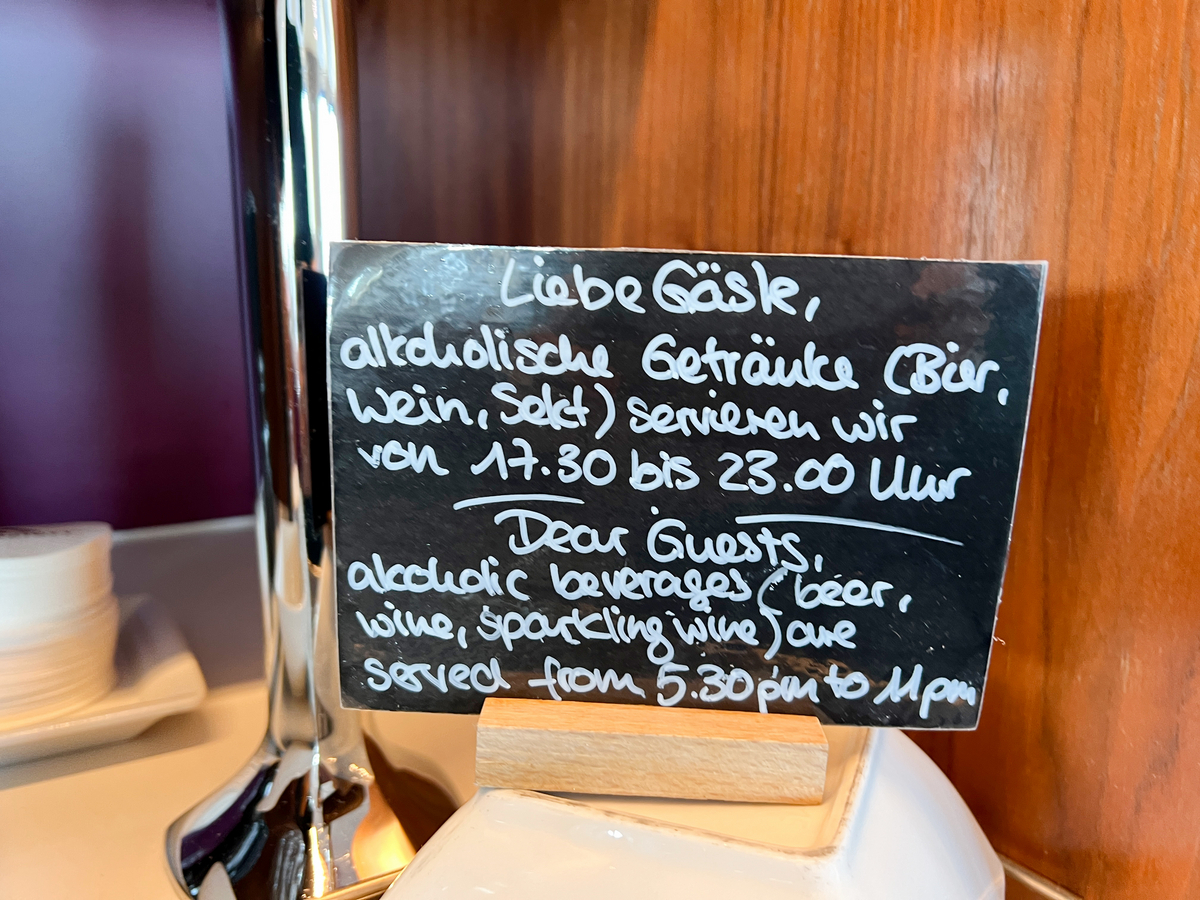 Liebe Gäste,
alkoholische Getränke (Bier,
Wein, Sekt) servieren wir
von 17.30 bis 23.00 Uhr
Dear Guests,
alcoholic beverages (beer,
wine, sparkling wine) are
served from 5.30 pm to 11 pm